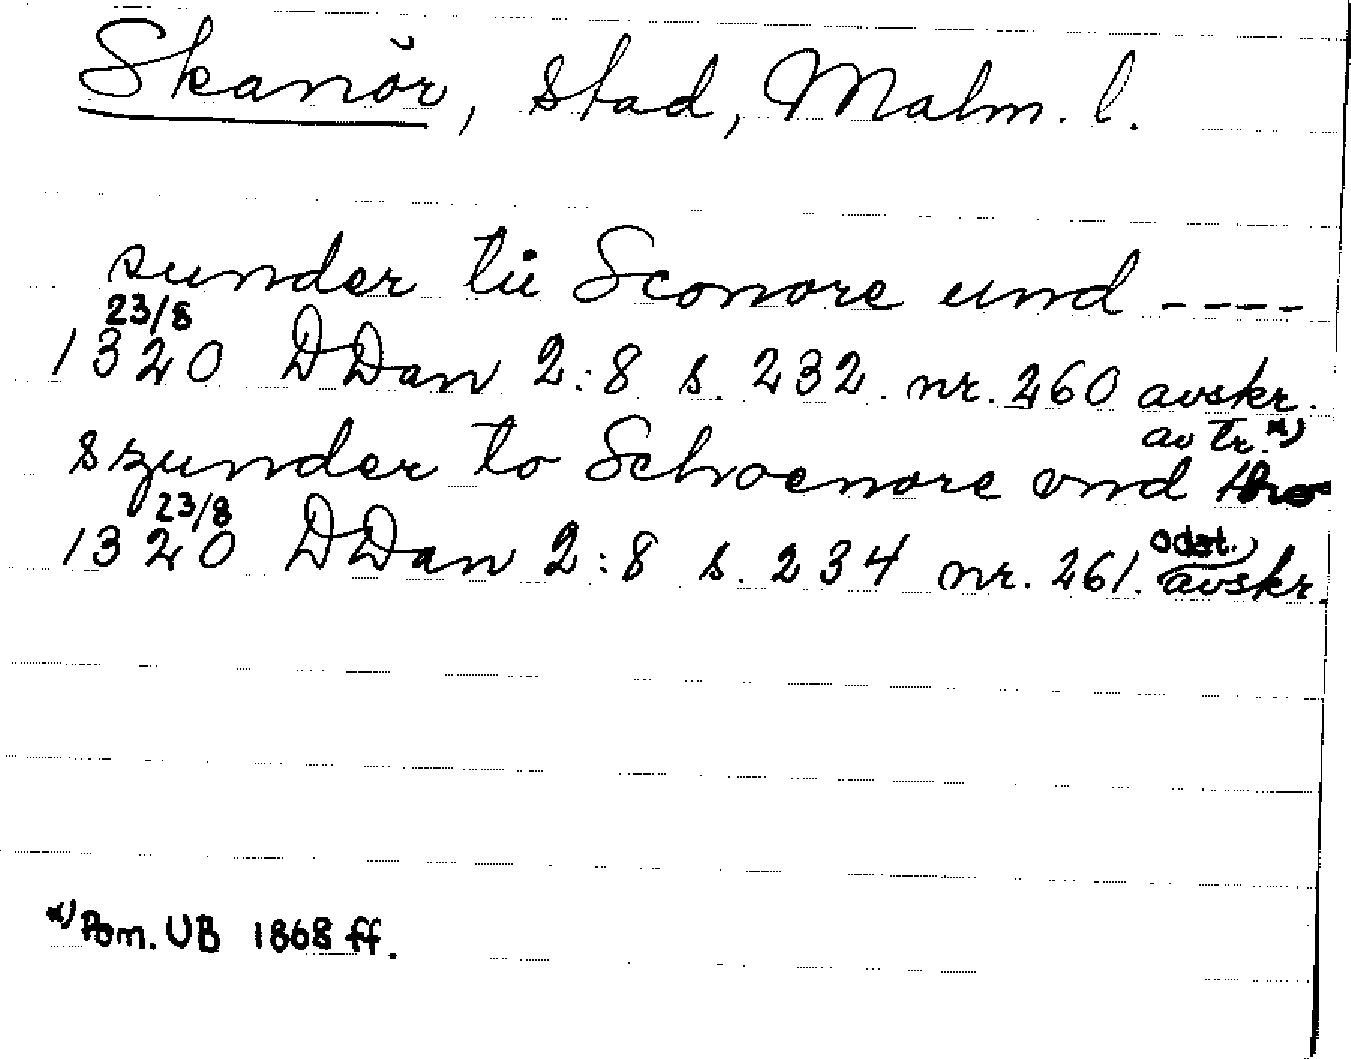 Skanör, stad, Malm. l.
sunder tü Sconore und ----
23/8
1320 DDan 2:8 s. 232 nr. 260 avskr.
av tr. x)
szunder to Schoenore vnd
23/8
1320 DDan 2:8 s. 234 nr. 261. odat. avskr.
x) Pom. UB 1868 ff.